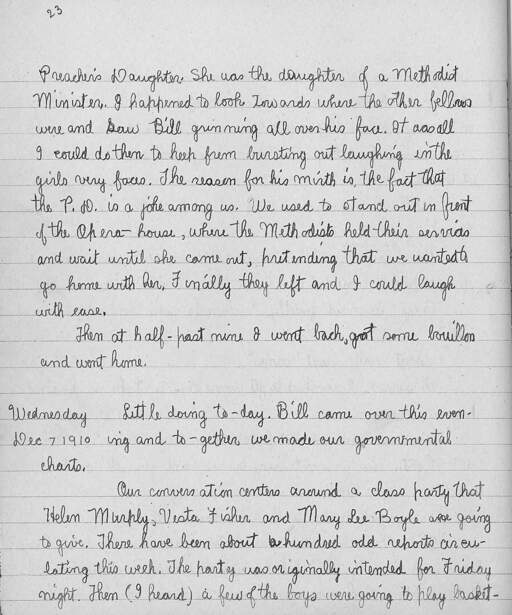 23
Preacher's Daughter. She was the daughter of a Methodist
Minister. I happened to look towards where the other fellows
were and saw Bill grinning all over his face. It was all
I could do then to keep from bursting out laughing in the
girls very faces. The reason for his mirth is, the fact that
the P. D. is a joke among us. We used to stand out in front
of the Opera-house, where the Methodists held their services
and wait until she came out, pretending that we wanted to
go home with her. Finally they left and I could laugh
with ease.
Then at half-past nine I went back, got some bouillon
and went home.
Wednesday Little doing to-day. Bill came over this even-
Dec 7 1910 ing and to-gether we made our governmental
charts.
Our conversation centers around a class party that
Helen Murphy, Vesta Fisher and Mary Lee Boyle are going
to give. There have been about a hundred odd reports circu-
lating this week. The party was originally intended for Friday
night. Then (I heard) a few of the boys were going to play basket-